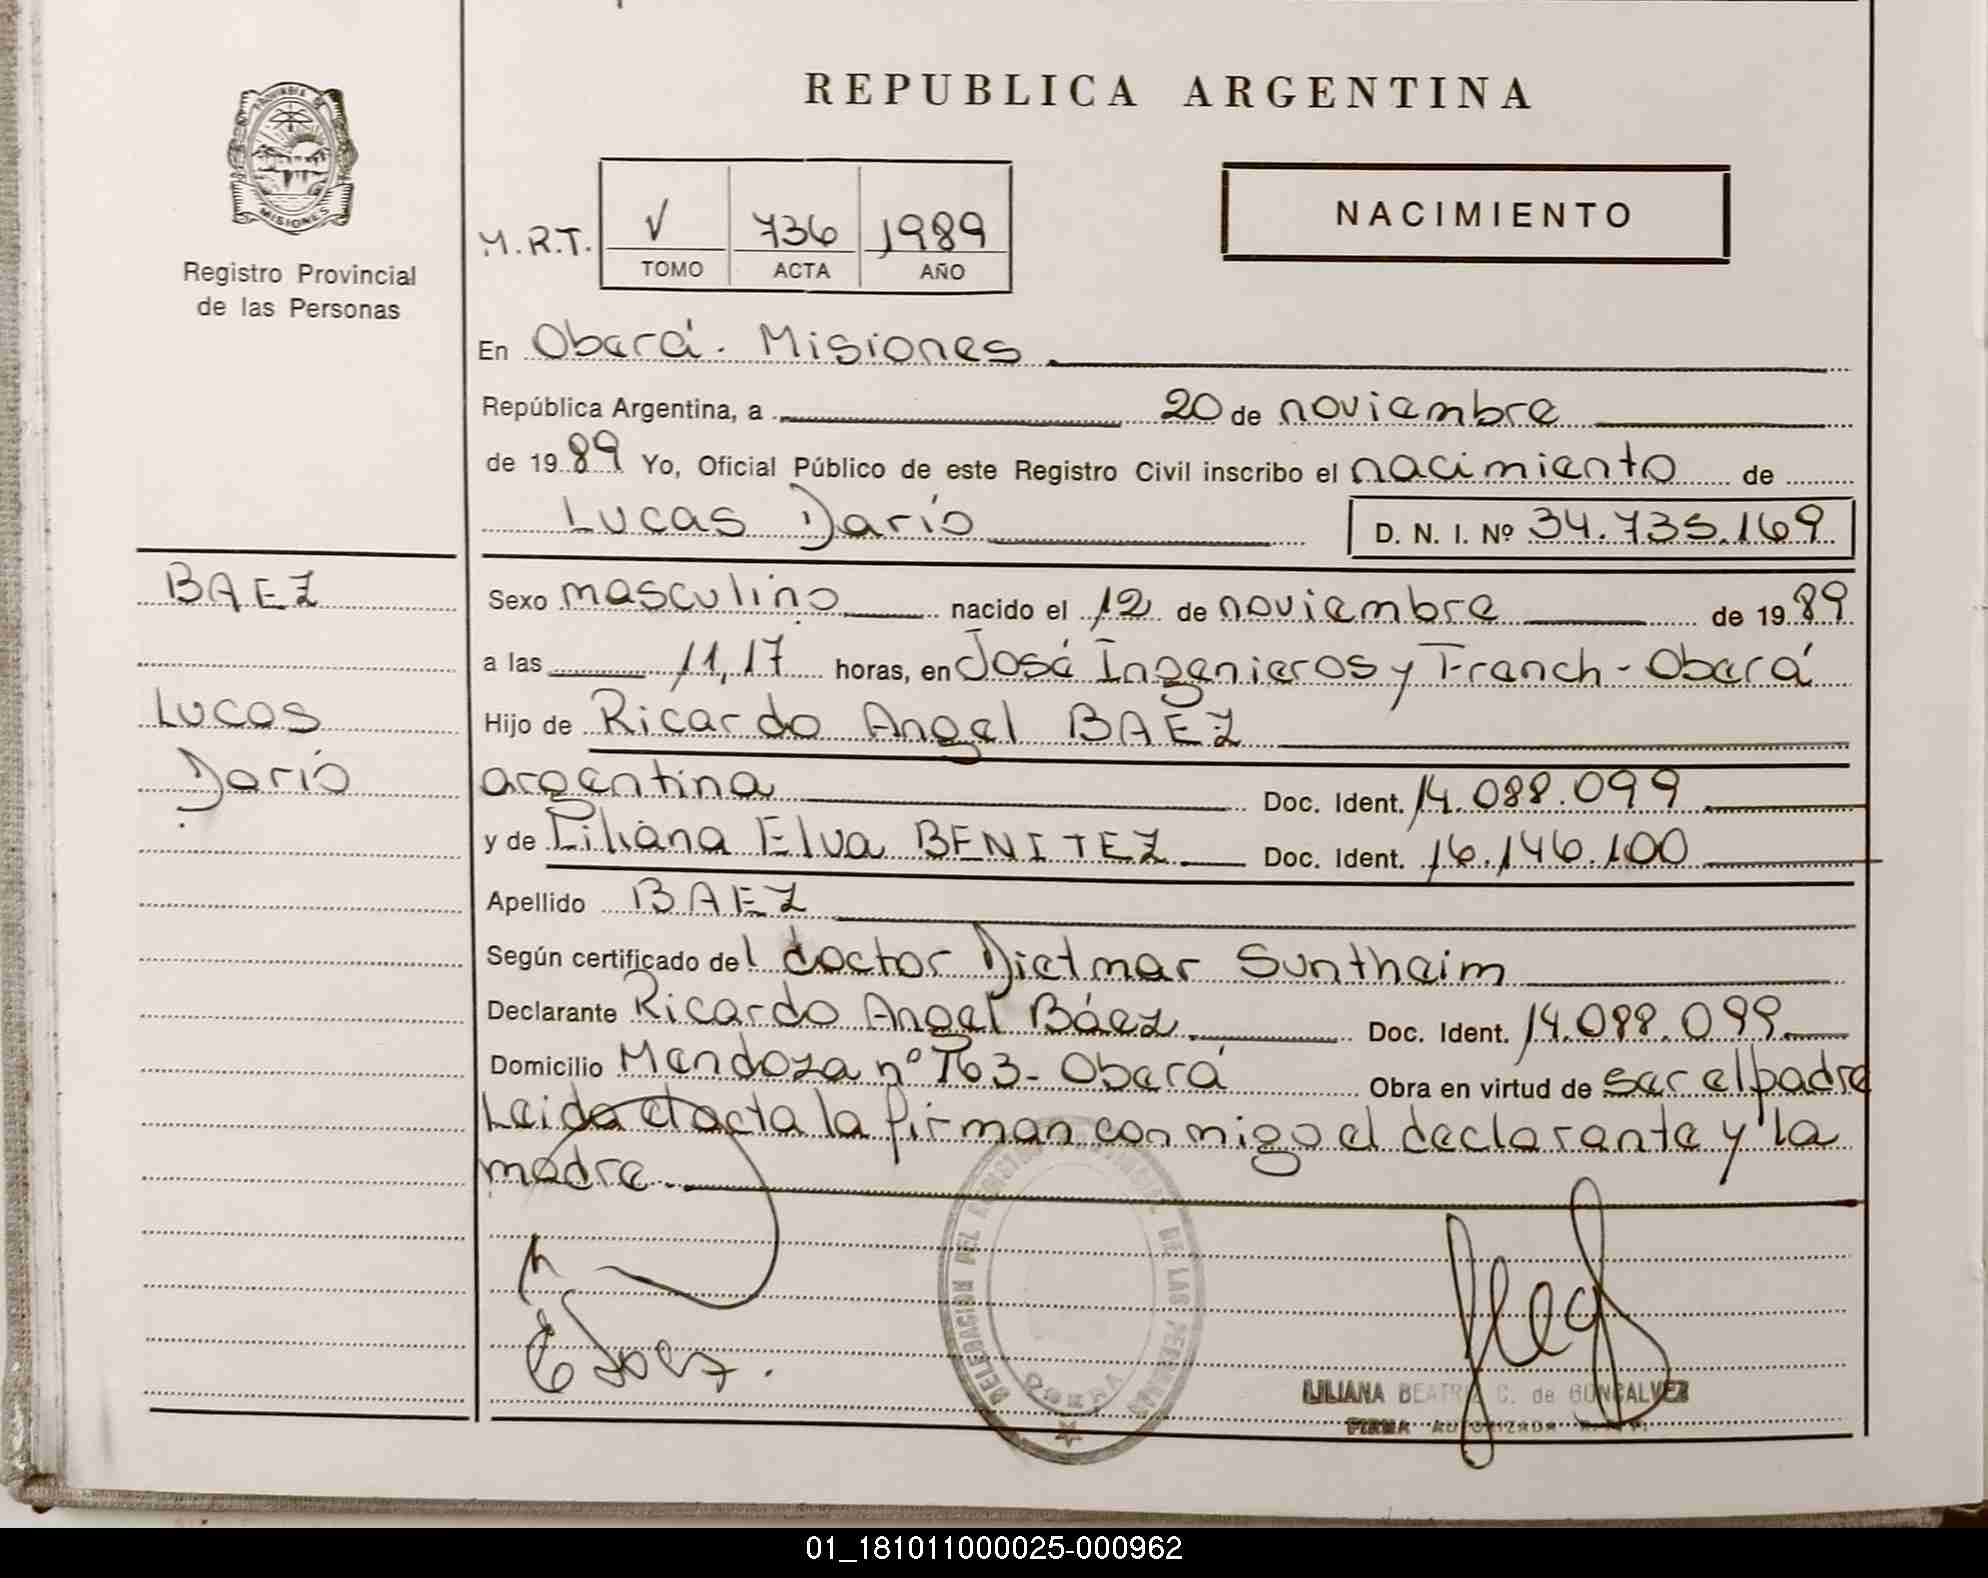 REPUBLICA ARGENTINA
PROVINCIA DE
MISIONES
Registro Provincial
de las Personas
M.R.T.
V 736 1989
TOMO ACTA AÑO
NACIMIENTO
En Oberá. Misiones
República Argentina, a 20 de noviembre
de 1989 Yo, Oficial Público de este Registro Civil inscribo el nacimiento de
Lucas Darío D. N. I. Nº 34.735.169
BAEZ
Lucas
Darío
Sexo masculino nacido el 12 de noviembre de 1989
a las 11,17 horas, en José Ingenieros y French - Oberá
Hijo de Ricardo Angel BAEZ
argentina Doc. Ident. 14.088.099
y de Liliana Elva BENITEZ Doc. Ident. 16.146.100
Apellido BAEZ
Según certificado del doctor Dietmar Suntheim
Declarante Ricardo Angel Báez Doc. Ident. 14.088.099
Domicilio Mendoza nº 763- Oberá Obra en virtud de ser el padre
Leida el acta la firman conmigo el declarante y la
madre.
DELEGACION DEL REGISTRO PROVINCIAL DE LAS PERSONAS
OBERA
LILIANA BEATRIZ C. de GONCALVEZ
FIRMA AUTORIZADA
01_181011000025-000962